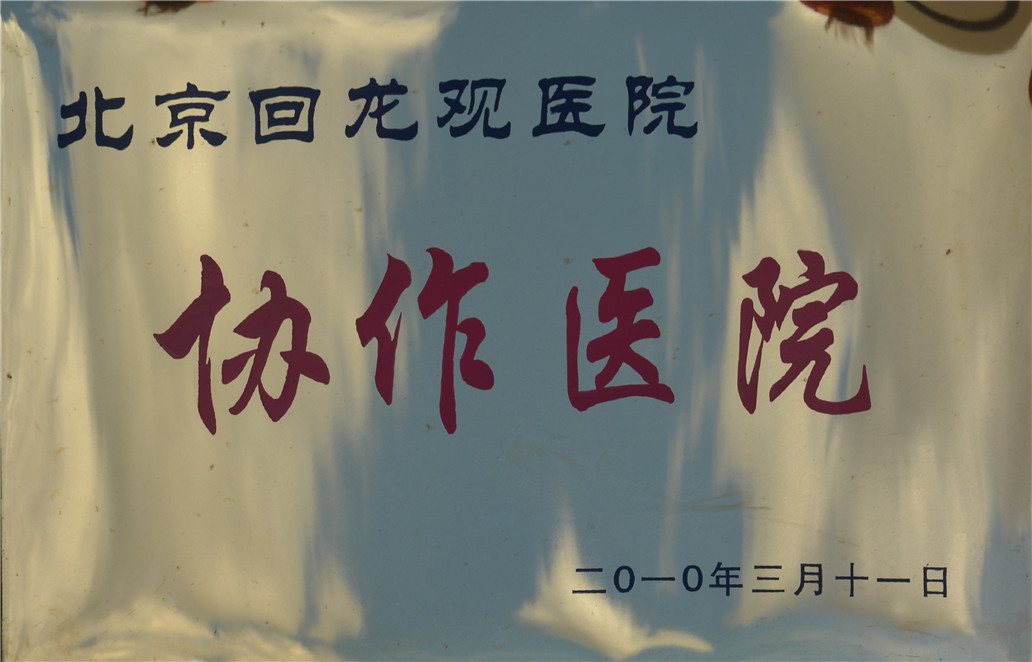 北京回龙观医院
协作医院
二0一0年三月十一日